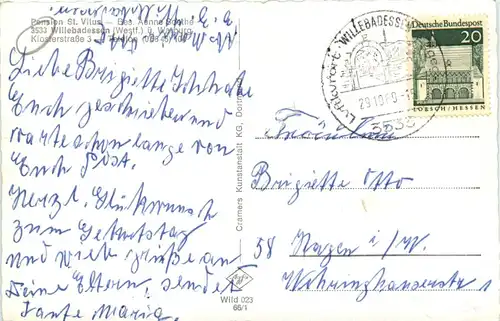 Pension St. Vitus — Bes. Aenne
3533 Willebadessen (Westf.) ü. Warburg
Klosterstraße 3 — Telefon
Liebe Brigitte Ich habe
Euch geschrieben und
warte schon lange von
Euch Post.
Herzl. Glückwunsch
zum Geburtstag
und viele Grüße an
Deine Eltern, sendet
Tante Maria.
Cramers Kunstanstalt KG, Dortmund
Wild 023
66/1
WILLEBADESSEN
Luftkurort
3533
DEUTSCHE BUNDESPOST
20
LORSCH/HESSEN
Fräulein
Brigitte Otto
58 Hagen i/W.